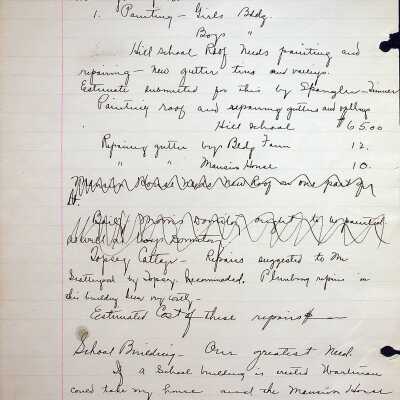 1. Painting - Girls Bldg.
Boys "
Hill School Roof needs painting and
repairing - new gutter tins and valleys.
Estimate submitted for this by Spangler - Tinner
Painting roof and repairing gutters and valleys
Hill School $65.00
Repairing gutter boys Bldg Farm 12.
" " Mansion House 10.
Mansion House needs new Roof on one part of
it.
ought to be painted
as well as boys Dormitory
Topsey Cottage - Repairs suggested to Mr
by Topsey. Recommended. Plumbing repairs in
this building been very costly -
Estimated Cost of these repairs $ -
School Building - Our greatest Need.
If a School building is erected Workman
could take my house and the Mansion House